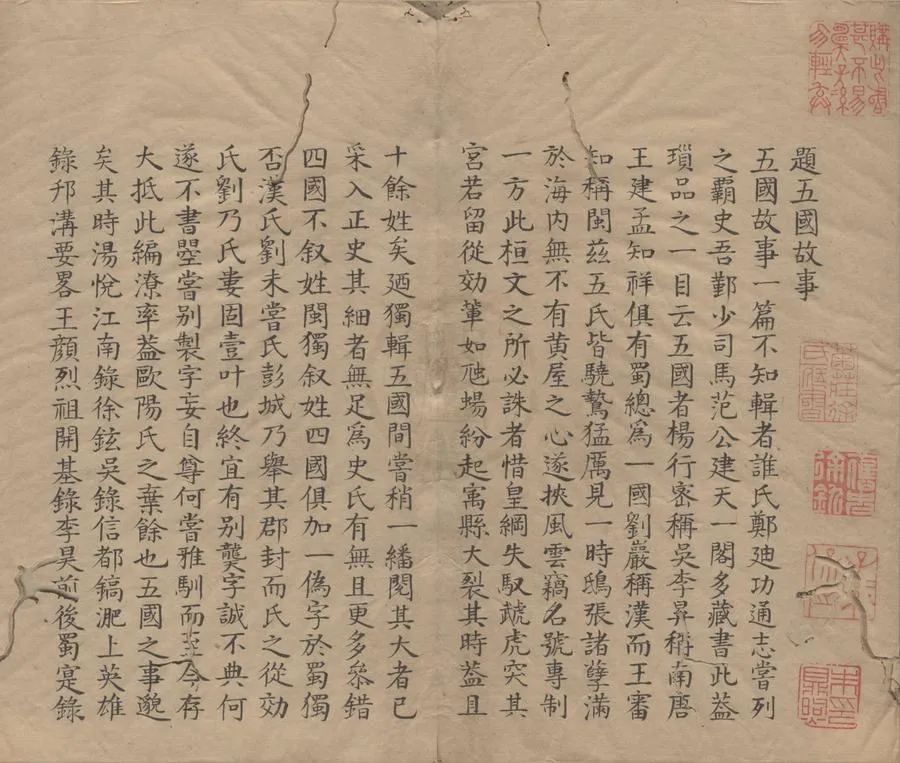 題五國故事
五國故事一篇不知輯者誰氏鄭廸功通志嘗列
之覇史吾鄞少司馬范公建天一閣多藏書此葢
瑣品之一目云五國者楊行宻稱吳李昪稱南唐
王建孟知祥俱有蜀總為一國劉巖稱漢而王審
知稱閩茲五氏皆驍驁猛厲見一時鴟張諸孽滿
於海内無不有黄屋之心遂挾風雲竊名號專制
一方此桓文之所必誅者惜皇綱失馭虣虎突其
宮若留從効輩如虺蜴紛起寓縣大裂其時葢且
十餘姓矣廼獨輯五國間嘗稍一繙閱其大者已
采入正史其細者無足爲史氏有無且更多叅錯
四國不叙姓閩獨叙姓四國俱加一偽字於蜀獨
否漢氏劉未嘗氏彭城乃舉其郡封而氏之從効
氏劉乃氏婁固壹叶也終宜有别龑字誠不典何
遂不書曌嘗别製字妄自尊何嘗雅馴而至今存
大抵此編潦率葢歐陽氏之棄餘也五國之事邈
矣其時湯悅江南錄徐鉉吳錄信都鎬淝上英雄
錄邗溝要畧王顏烈祖開基錄李昊前後蜀寔錄
購此書
甚不易
子孫
勿輕弃